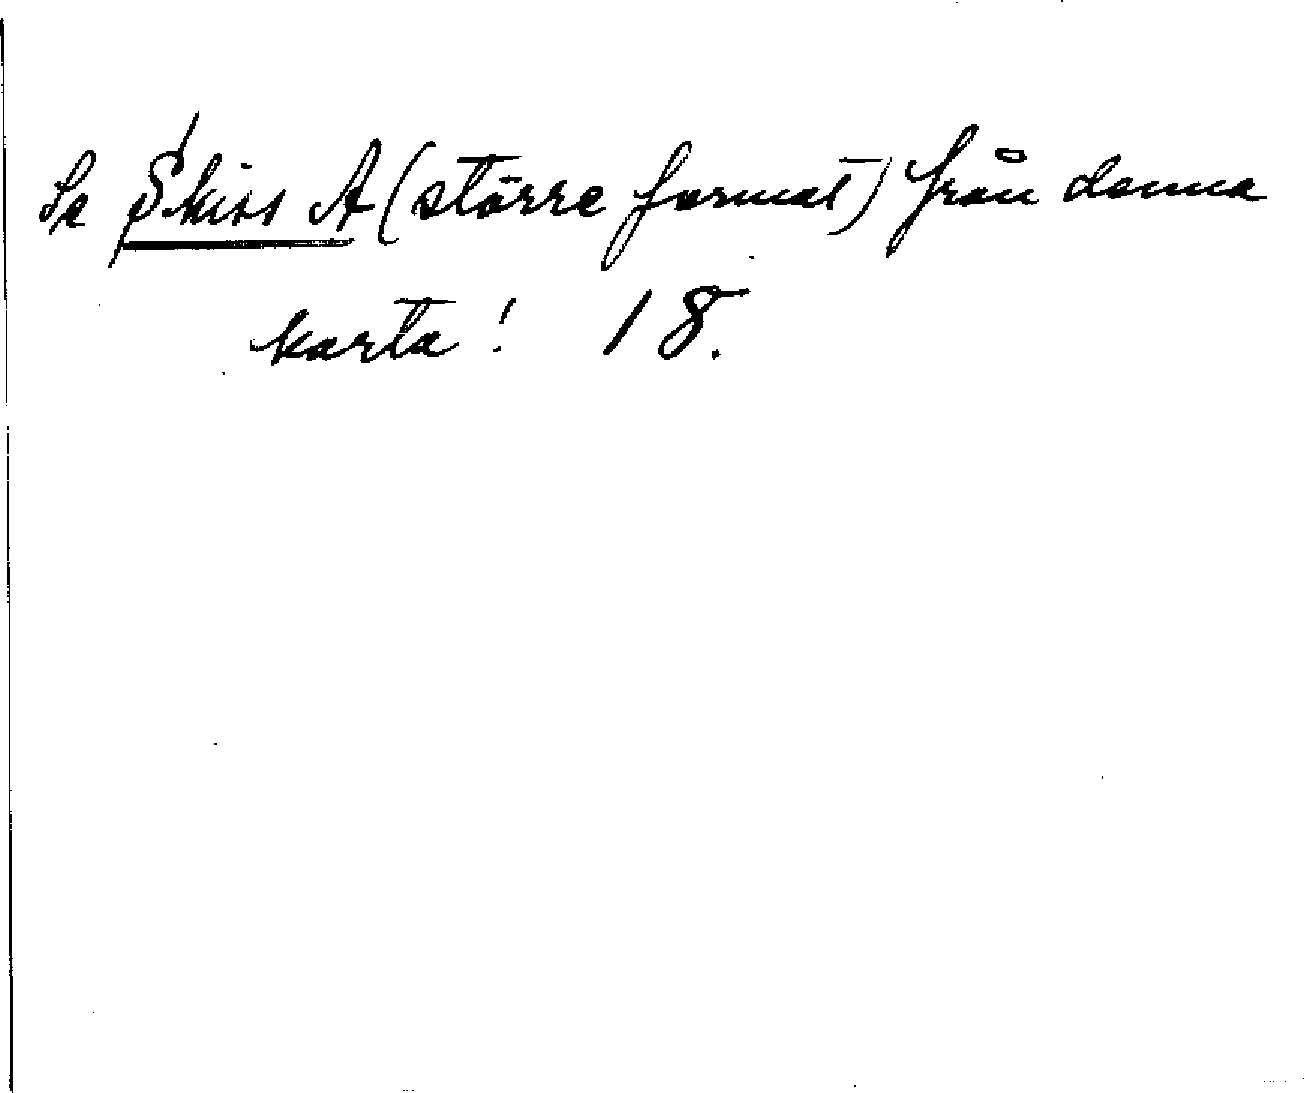 Se Skiss A (större format) från denna
karta! 18.